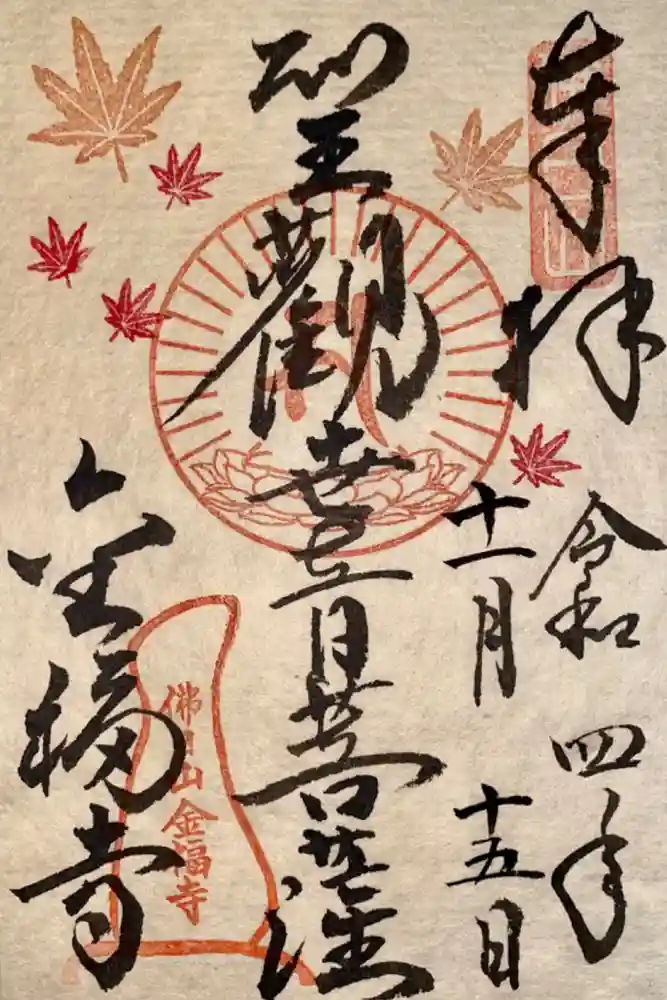 奉拝
令和四年
十一月十五日
聖觀世音菩薩
佛日山金福寺
金福寺